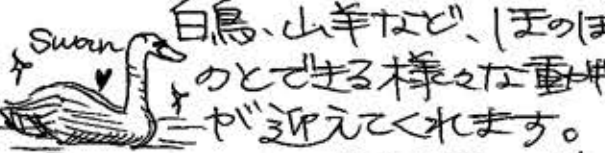 Swan
白鳥、山羊など、ほのぼ
のとできる様々な動物
が迎えてくれます。